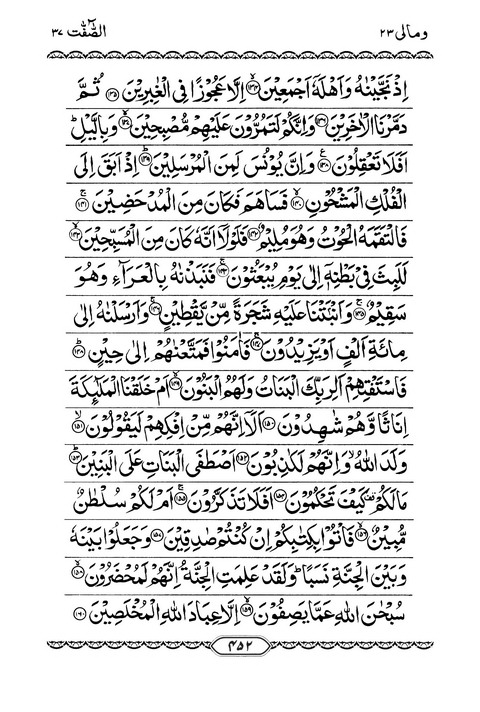 ومالى ٢٣
الصّٰفّٰت ٣٧
اِذْ نَجَّيْنٰهُ وَاَهْلَهٗۤ اَجْمَعِيْنَ ۙ‏﴿۱۳۴﴾ اِلَّا عَجُوْزًا فِى الْغٰبِرِيْنَ ﴿۱۳۵﴾ ثُمَّ
دَمَّرْنَا الْاٰخَرِيْنَ ﴿۱۳۶﴾ وَاِنَّكُمْ لَتَمُرُّوْنَ عَلَيْهِمْ مُّصْبِحِيْنَ ۙ‏﴿۱۳۷﴾ وَبِالَّيْلِ ؕ
اَفَلَا تَعْقِلُوْنَ ﴿۱۳۸﴾ وَاِنَّ يُوْنُسَ لَمِنَ الْمُرْسَلِيْنَ ؕ‏﴿۱۳۹﴾ اِذْ اَبَقَ اِلَى
الْفُلْكِ الْمَشْحُوْنِ ۙ‏﴿۱۴۰﴾ فَسَاهَمَ فَكَانَ مِنَ الْمُدْحَضِيْنَ ۚ‏﴿۱۴۱﴾
فَالْتَقَمَهُ الْحُوْتُ وَهُوَ مُلِيْمٌ ﴿۱۴۲﴾ فَلَوْلَاۤ اَنَّهٗ كَانَ مِنَ الْمُسَبِّحِيْنَ ۙ‏﴿۱۴۳﴾
لَلَبِثَ فِىْ بَطْنِهٖۤ اِلٰى يَوْمِ يُبْعَثُوْنَ ۚ‏﴿۱۴۴﴾ فَنَبَذْنٰهُ بِالْعَرَآءِ وَهُوَ
سَقِيْمٌ ۚ‏﴿۱۴۵﴾ وَاَنْۢبَتْنَا عَلَيْهِ شَجَرَةً مِّنْ يَّقْطِيْنٍ ۚ‏﴿۱۴۶﴾ وَاَرْسَلْنٰهُ اِلٰى
مِائَةِ اَلْفٍ اَوْ يَزِيْدُوْنَ ۚ‏﴿۱۴۷﴾ فَاٰمَنُوْا فَمَتَّعْنٰهُمْ اِلٰى حِيْنٍ ؕ‏﴿۱۴۸﴾
فَاسْتَفْتِهِمْ اَلِرَبِّكَ الْبَنَاتُ وَلَهُمُ الْبَنُوْنَ ۙ‏﴿۱۴۹﴾ اَمْ خَلَقْنَا الْمَلٰٓئِكَةَ
اِنَاثًا وَّهُمْ شٰهِدُوْنَ ﴿۱۵۰﴾ اَلَاۤ اِنَّهُمْ مِّنْ اِفْكِهِمْ لَيَقُوْلُوْنَ ۙ‏﴿۱۵۱﴾
وَلَدَ اللّٰهُ ۙ وَاِنَّهُمْ لَكٰذِبُوْنَ ﴿۱۵۲﴾ اَصْطَفَى الْبَنَاتِ عَلَى الْبَنِيْنَ ؕ‏﴿۱۵۳﴾
مَا لَكُمْ كَيْفَ تَحْكُمُوْنَ ﴿۱۵۴﴾ اَفَلَا تَذَكَّرُوْنَ ۚ‏﴿۱۵۵﴾ اَمْ لَكُمْ سُلْطٰنٌ
مُّبِيْنٌ ۙ‏﴿۱۵۶﴾ فَاْتُوْا بِكِتٰبِكُمْ اِنْ كُنْتُمْ صٰدِقِيْنَ ﴿۱۵۷﴾ وَجَعَلُوْا بَيْنَهٗ
وَبَيْنَ الْجِنَّةِ نَسَبًا ؕ وَلَقَدْ عَلِمَتِ الْجِنَّةُ اِنَّهُمْ لَمُحْضَرُوْنَ ۙ‏﴿۱۵۸﴾
سُبْحٰنَ اللّٰهِ عَمَّا يَصِفُوْنَ ۙ‏﴿۱۵۹﴾ اِلَّا عِبَادَ اللّٰهِ الْمُخْلَصِيْنَ ﴿۱۶۰﴾
۴۵۲